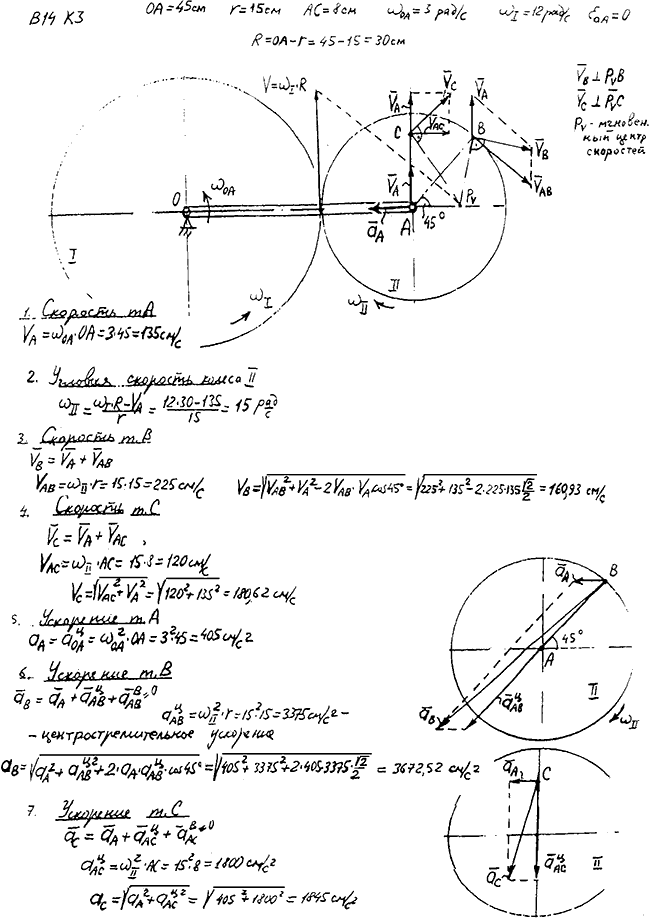 В14 К3 OA=45см r=15см AC=8см ω_OA=3 рад/с ω_I=12 рад/с ε_OA=0
R=OA-r=45-15=30см
V=ω_I·R
V̄_A V̄_C V̄_A
C V̄_AC B V̄_B
V̄_A V̄_AB
V̄_B ⊥ P_V B
V̄_C ⊥ P̄_V C
P_V - мгновен-
ный центр
скоростей
O ω_OA ā_A A 45° P_V
I ω_I II ω_II
1. Скорость т.A
V_A=ω_OA·OA=3·45=135см/с
2. Угловая скорость колеса II
ω_II=(ω_I·R-V_A)/r=(12·30-135)/15=15 рад/с
3. Скорость т.B
V̄_B=V̄_A+V̄_AB
V_AB=ω_II·r=15·15=225см/с V_B=√(V_AB²+V_A²-2V_AB·V_A cos45°)=√(225²+135²-2·225·135·√2/2)=160,93 см/с
4. Скорость т.C
V̄_C=V̄_A+V̄_AC,
V_AC=ω_II·AC=15·8=120см/с
V_C=√(V_AC²+V_A²)=√(120²+135²)=180,62 см/с
5. Ускорение т.A
a_A=a_OA^ц=ω_OA²·OA=3²·45=405см/с²
6. Ускорение т.B
ā_B=ā_A+ā_AB^ц+ā_AB^в=0
a_AB^ц=ω_II²·r=15²·15=3375см/с²-
-центростремительное ускорения
a_B=√(a_A²+a_AB^ц²+2·a_A·a_AB^ц·cos45°)=√(405²+3375²+2·405·3375·√2/2)=3672,52 см/с²
ā_A B
45°
A
II
ā_B ā_AB^ц ω_II
7. Ускорение т.C
ā_C=ā_A+ā_AC^ц+ā_AC^в=0
a_AC^ц=ω_II²·AC=15²·8=1800см/с²
a_C=√(a_A²+a_AC^ц²)=√(405²+1800²)=1845см/с²
ā_A C
ā_C ā_AC^ц II